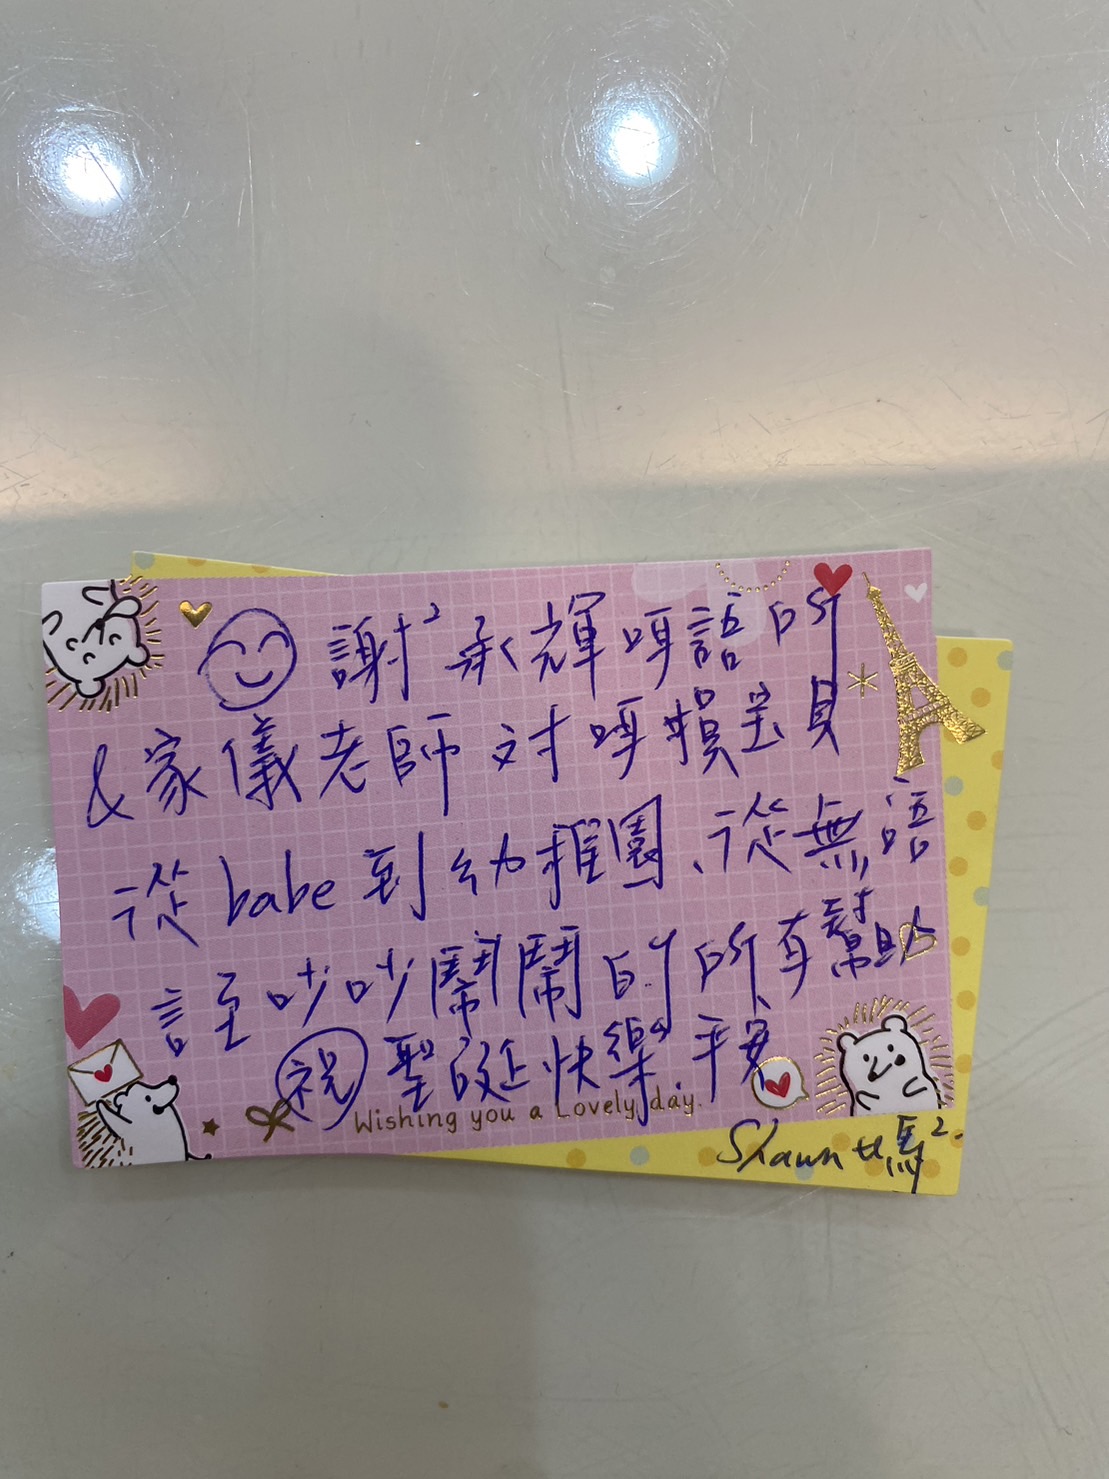 謝² 承輝听語所
& 家儀老師 对听損宝貝
從 babe 到幼稚園、從無語
言至吵吵鬧鬧的所有幫助
祝 聖誕快樂、平安
Wishing you a Lovely day.
Shawn 媽².